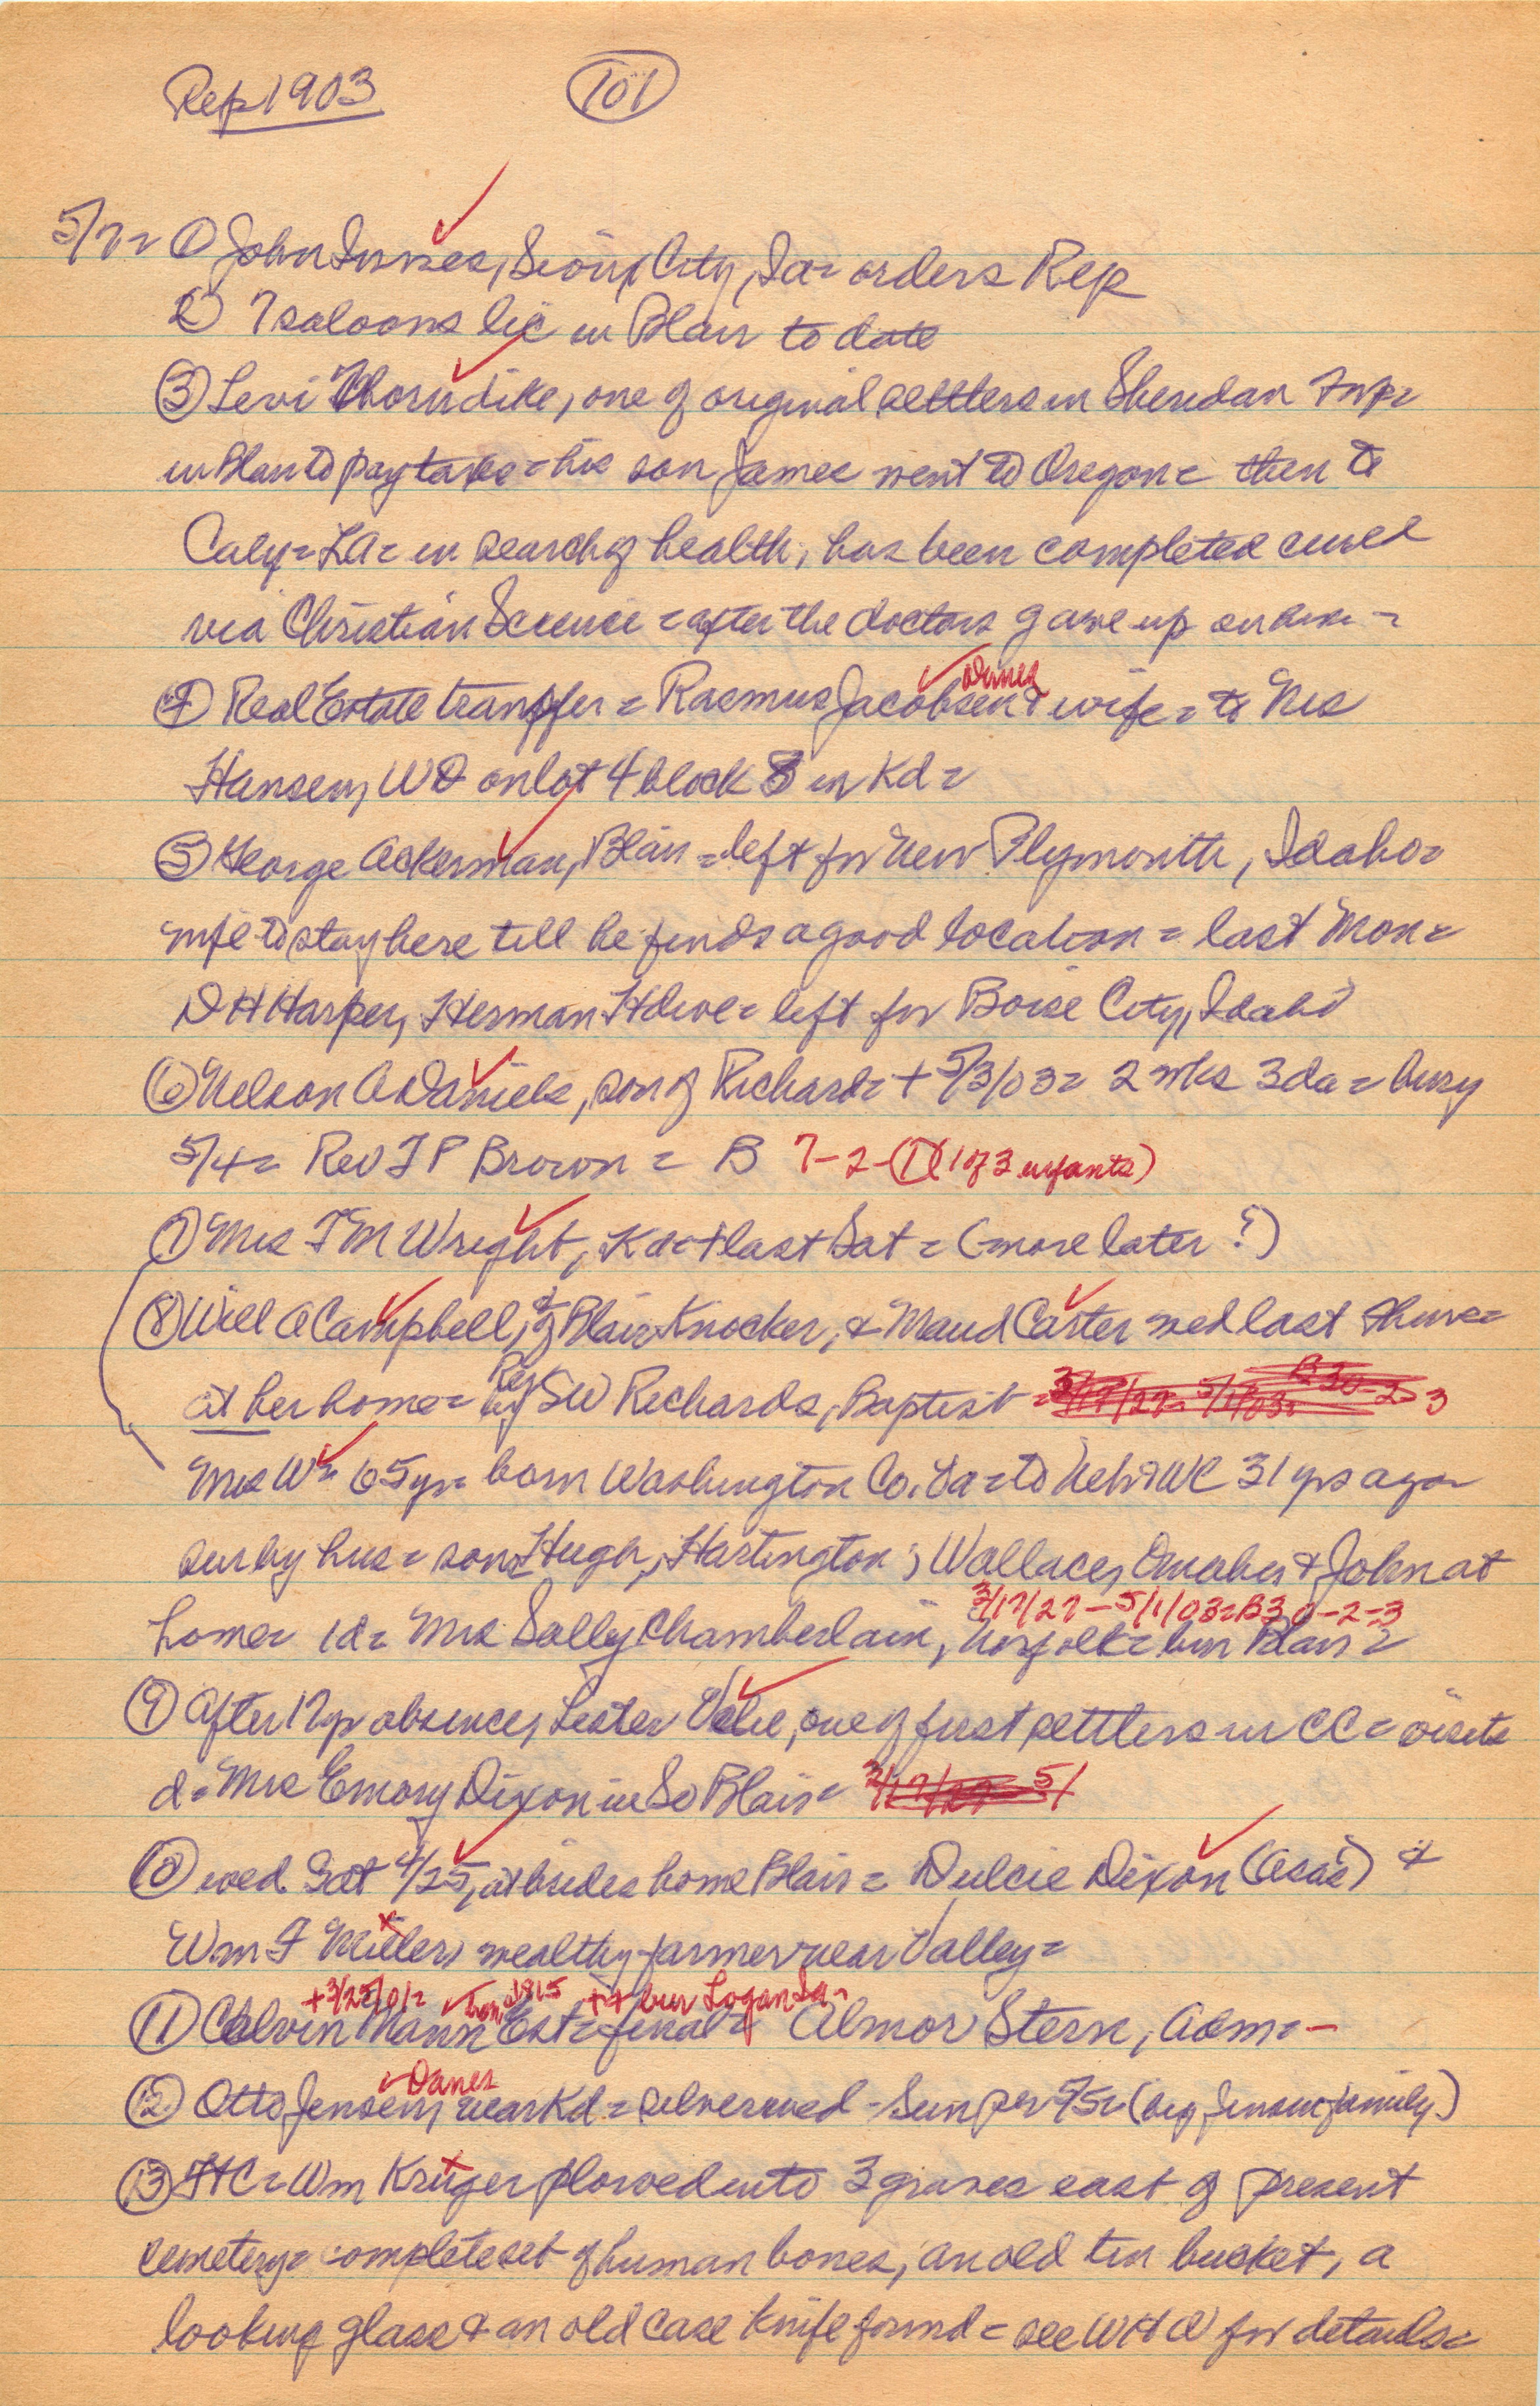 Rep 1903 101
5/7= ① John Innes, Sioux City, Ia= orders Rep
② 7 saloons lic in Blair to date
③ Levi Thorndike, one of original settlers in Sheridan Twp=
in Blair to pay taxes= his son James went to Oregon= then to
Calif= LA= in search of health, has been completed cured
via Christian Science= after the doctors gave up on him=
Danes
④ Real Estate transfer= Rasmus Jacobsen & wife= to Nis
Hansen, WD on lot 4 block 8 in Kd=
⑤ George Ackerman, Blair= left for New Plymouth, Idaho=
wife to stay here till he finds a good location= last Mon=
D H Harper, Herman left for Boise City, Idaho
⑥ Nelson A Daniels, son of Richard= + 5/3/03= 2 wks 3 da= bury
5/4= Rev J P Brown= B 7-2-① (1 of 3 infants)
⑦ Mrs T M Wright, Kd= + last Sat= (more later?)
⑧ Will A Campbell, of Blair Knocker, & Maud Carter wed last Thurs=
at her home= by Rev SW Richards, Baptist= 3/17/27- 5/1/03= B30-2-3
Mrs W= 65 yr= born Washington Co. Pa= to Neb & WC 31 yrs ago=
sur by hus= sons Hugh, Hartington; Wallace, Omaha & John at
3/17/27-5/1/03=B30-2-3
home= 1d= Mrs Sally Chamberlain, Norfolk= bur Blair=
⑨ After 12 yr absence, Lester Velie, one of first settlers in CC= visits
d= Mrs Emory Dixon in So Blair= 3/17/27 5/
⑩ wed Sat 4/25, at brides home Blair= Dulcie Dixon (Asa's) &
Wm F Miller, wealthy farmer near Valley=
+3/25/01= born 1815 ++ bur Logan Ia-
⑪ Calvin Mann Est= final= Almor Stern, Adm=-
Danes
⑫ Otto Jensen, near Kd= silver wed- Sun per 75= (big Jensen family)
⑬ HC= Wm Kruger plowed into 3 graves east of present
cemetery= complete set of human bones, an old tin bucket, a
looking glass & an old case knife found= see for details=